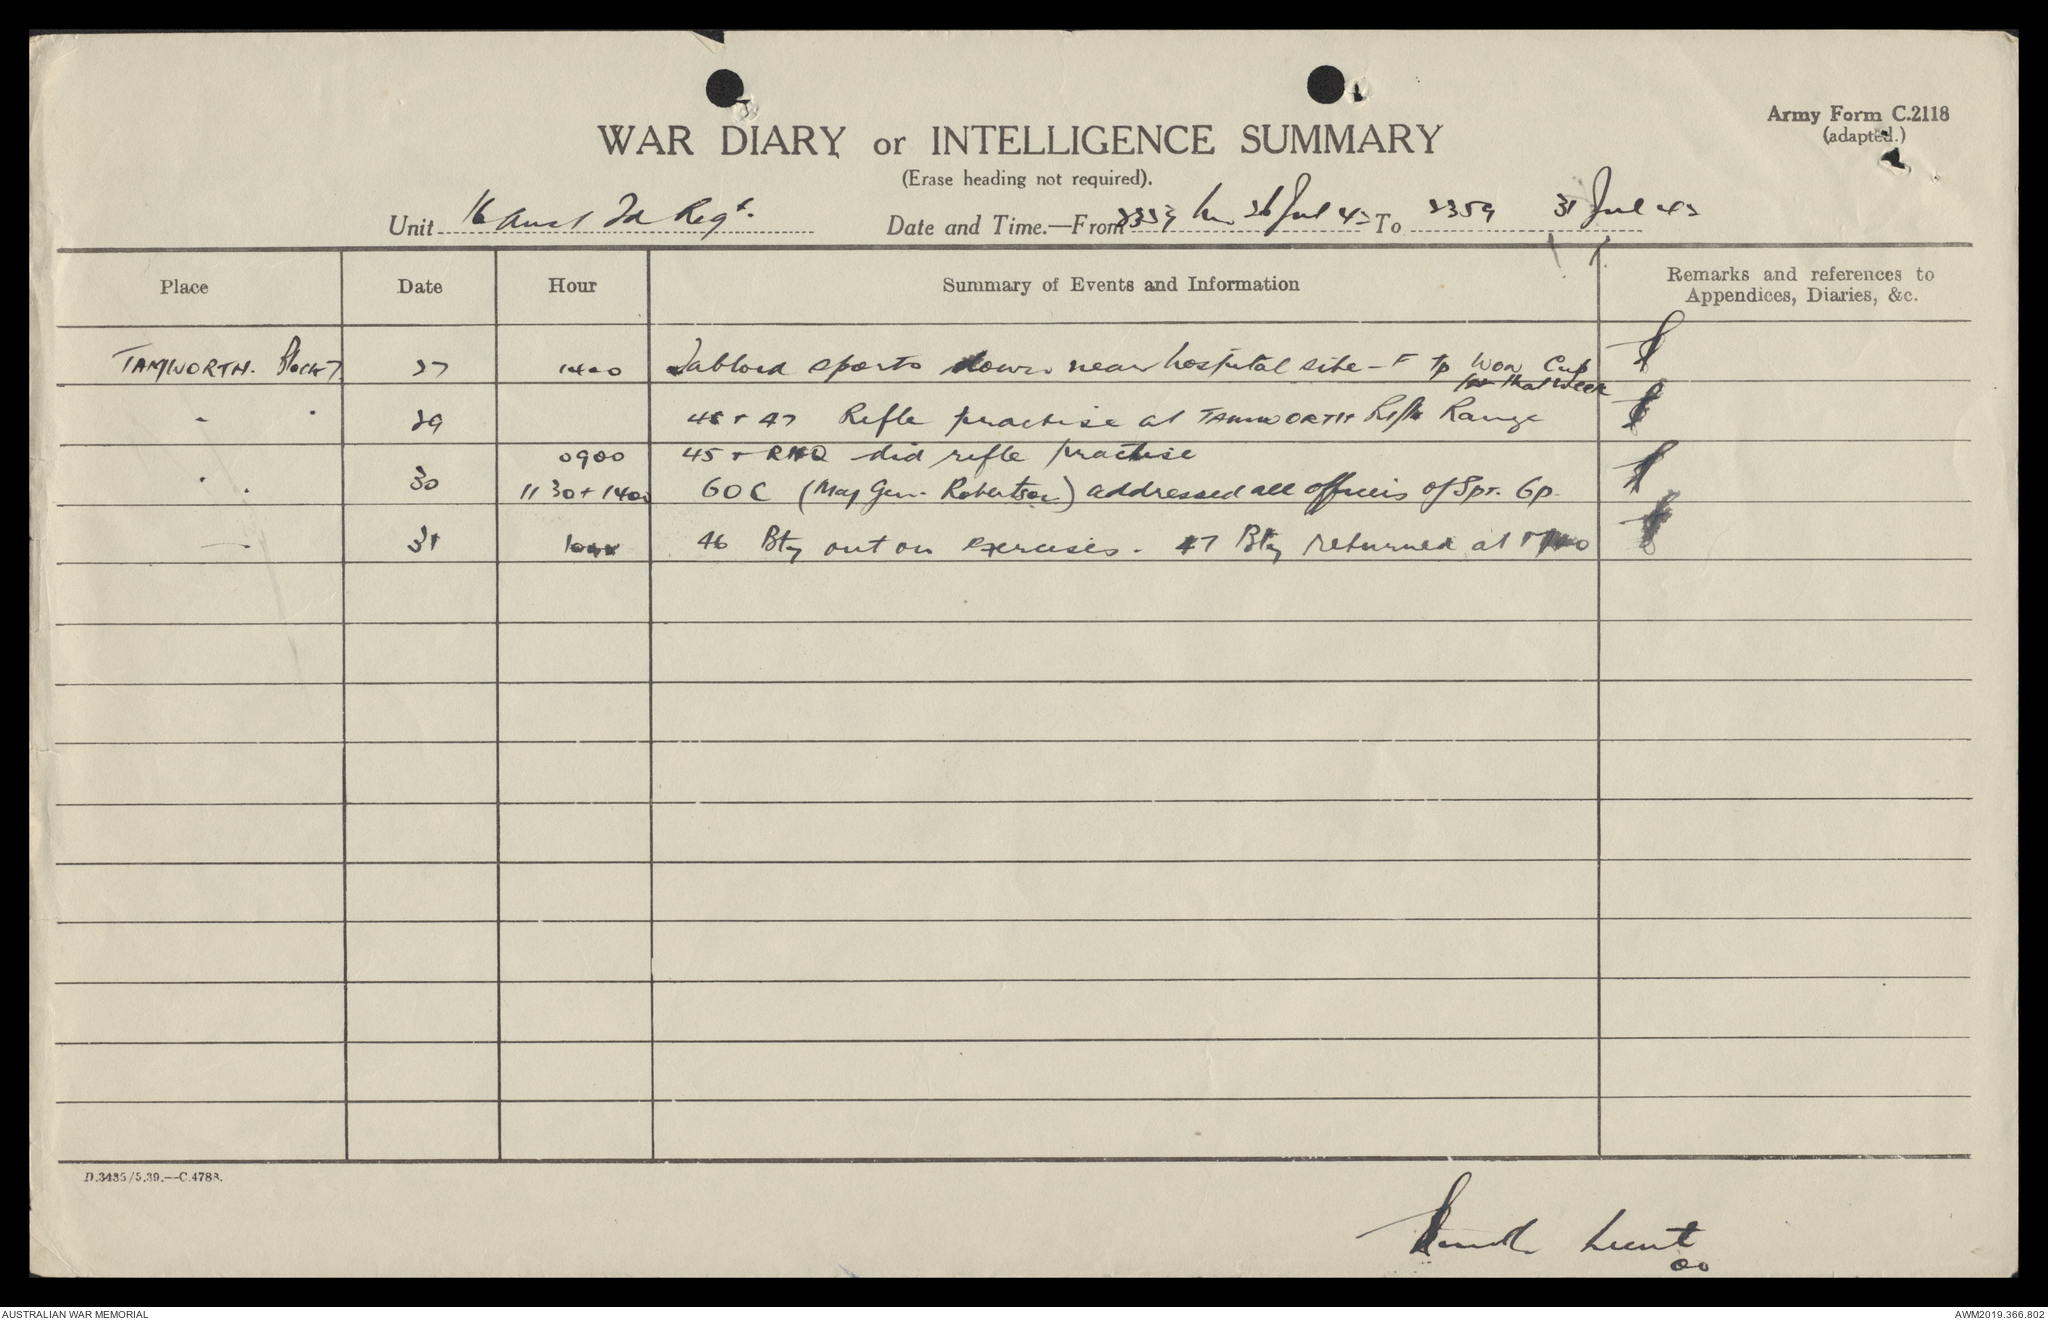 Army Form C.2118
(adapted.)
WAR DIARY or INTELLIGENCE SUMMARY
(Erase heading not required).
Unit 16 Aust Fd Regt. Date and Time.—From 26 Jul 42 To 2359 31 Jul 42
Place Date Hour Summary of Events and Information Remarks and references to Appendices, Diaries, &c.
TAMWORTH. 27 1400 Tabloid sports down near hospital site - F Tp Won Cup
for that week
" " 29 46 + 47 Rifle practise at TAMWORTH Rifle Range
0900 45 + RHQ did rifle practise
" " 30 1130 + 1400 GOC (Maj Gen. Robertson) addressed all officers of Spt. Gp.
31 46 Bty out on exercises. 47 Bty returned at
D.3435/5.39.—C.4788.
Lieut
AUSTRALIAN WAR MEMORIAL
AWM2019.366.802